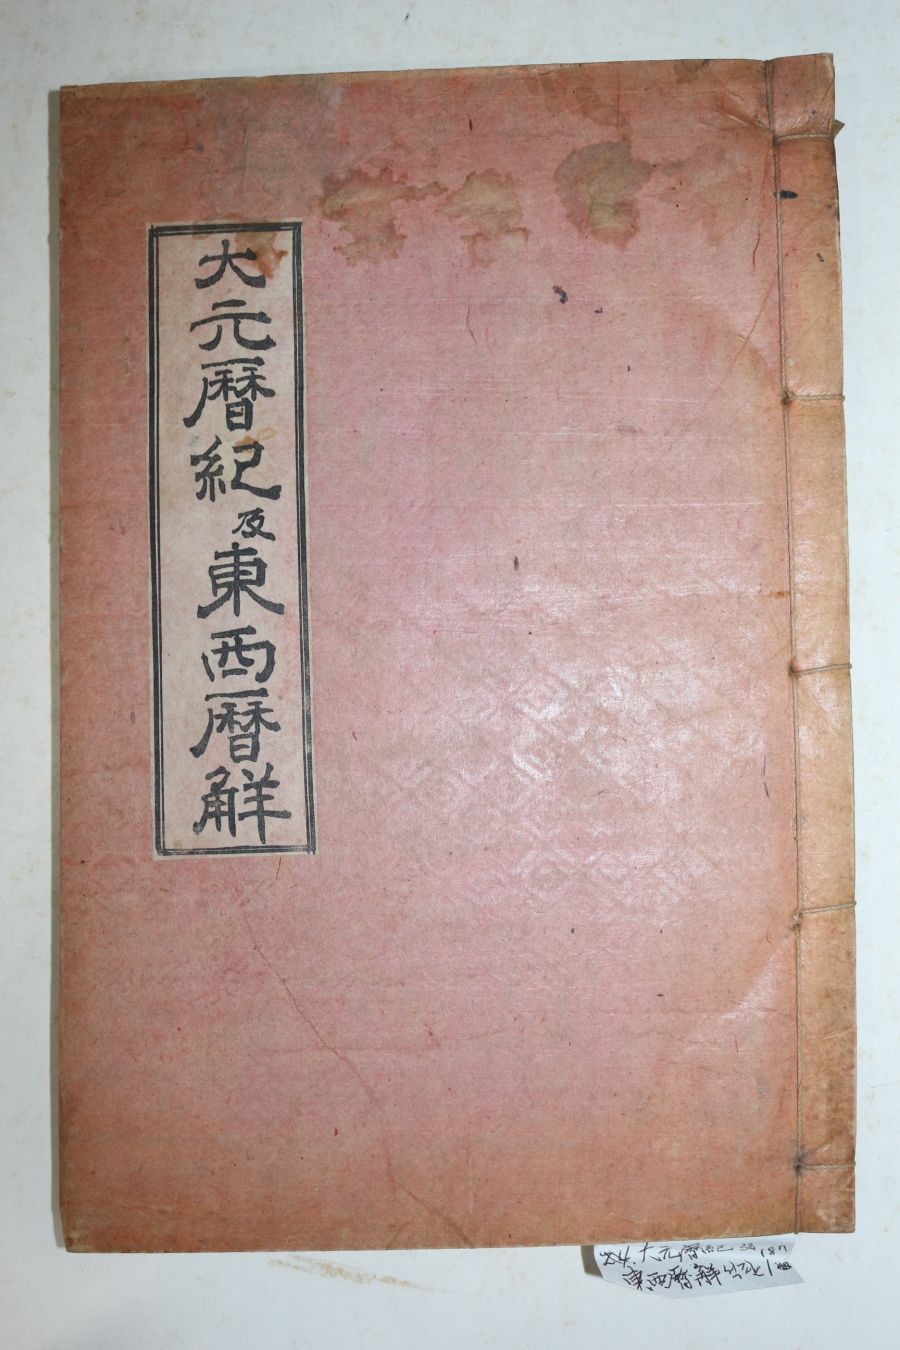 大元曆紀及東西曆解
大元曆紀及
東西曆解